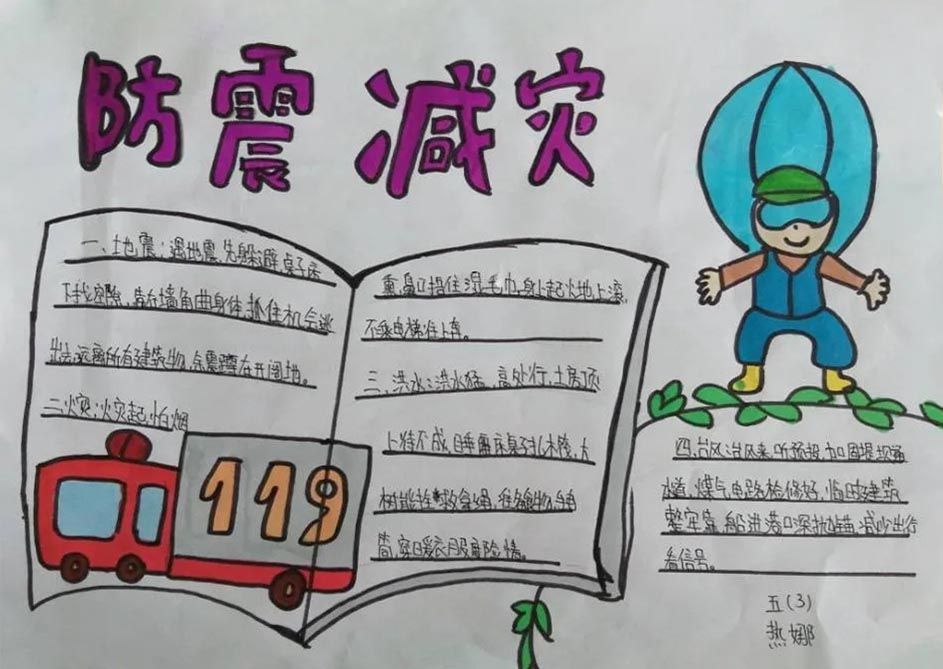 防震减灾
一、土也震:遇地震,先躲避,桌子床
下找空隙,靠在墙角曲身体,抓住机会逃
出去,远离所有建筑物,余震蹲在开阔地。
二火灾:火灾起,怕烟
熏,鼻口捂住湿毛巾,身上起火地上滚,
不乘电梯往上奔。
三、洪水:洪水猛,高处行,土房顶
上待不成,睡床桌子扎木筏,大
树能拴救命绳,
筒,穿暖衣服度险情。
119
四,台风:台风来,听预报,加固堤坝通
水道,煤气电路检修好,临时建筑
整牢靠,船进港口深抛锚,减少出行
看信号。
五(3)
热娜